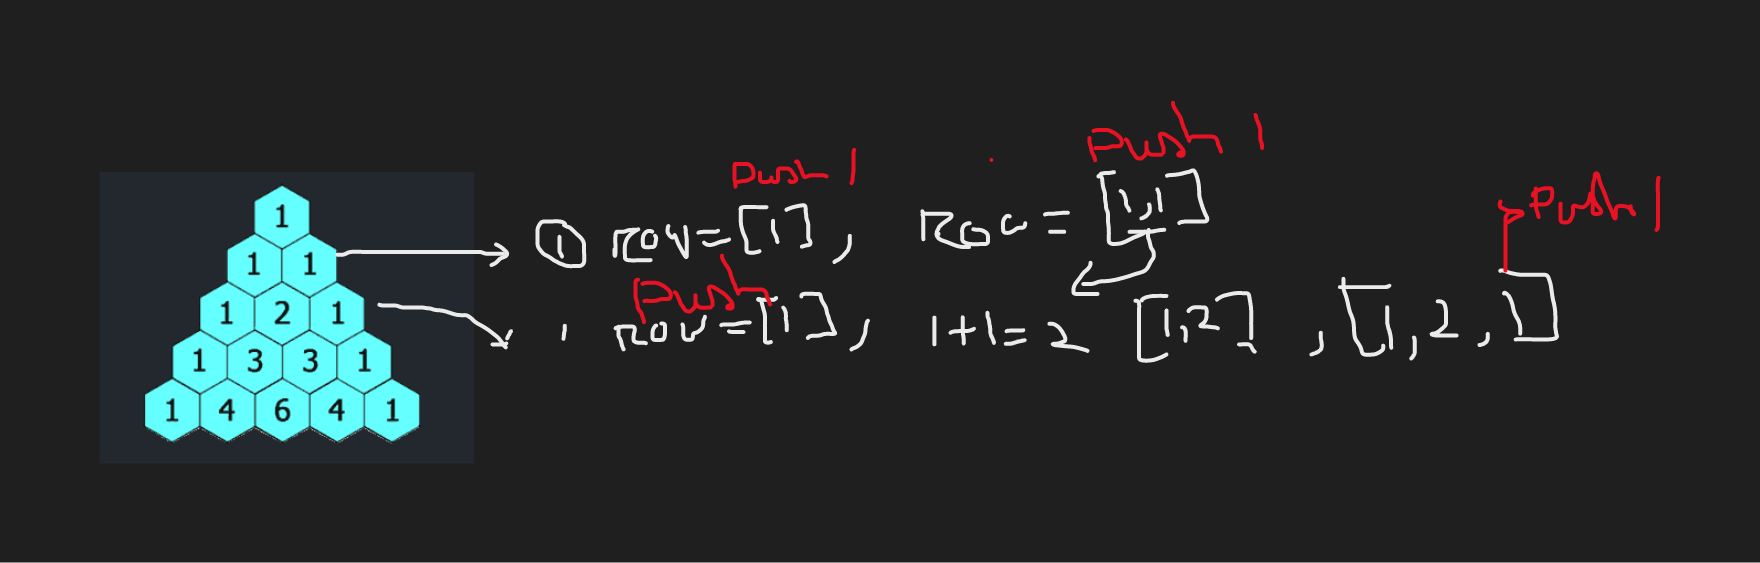 1
1 1
1 2 1
1 3 3 1
1 4 6 4 1
Push 1
Push 1
Push 1
① row=[1], row=[1,1]
Push
1 row=[1], 1+1=2 [1,2], [1,2,1]